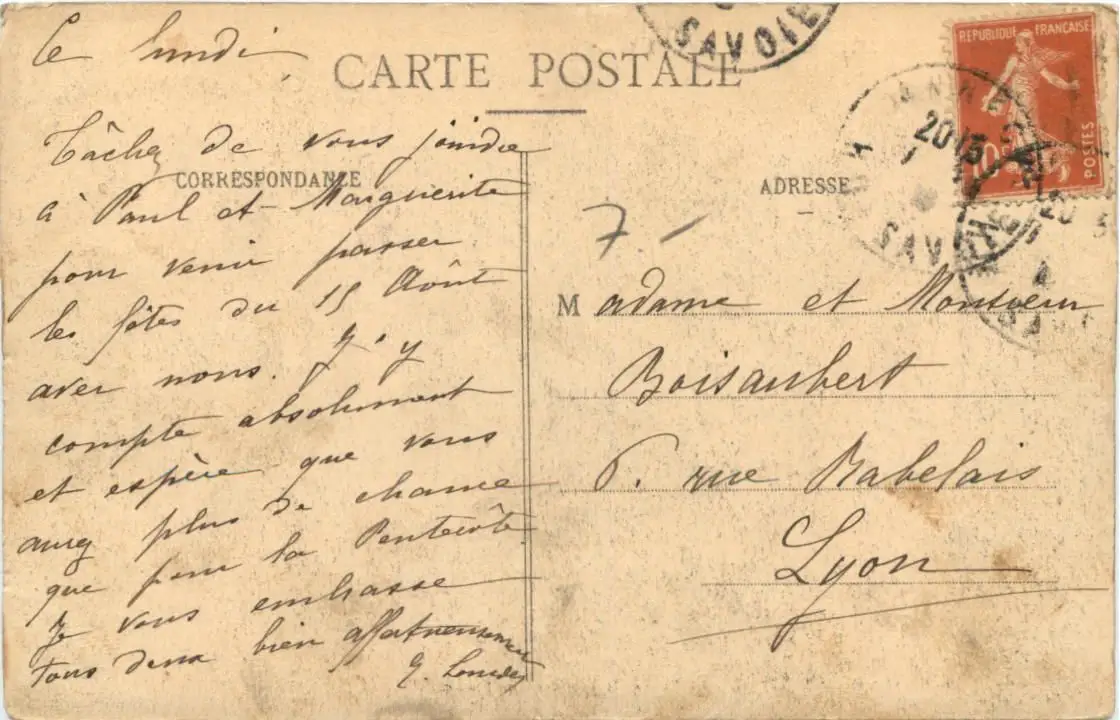 Ce lundi
CARTE POSTALE
CORRESPONDANCE
Tâchez de vous joindre
à Paul et Marguerite
pour venir passer
les fêtes du 15 Août
avec nous. J'y
compte absolument
et espère que vous
aurez plus de chance
que pour la Pentecôte
Je vous embrasse
tous deux bien affectueusement
ADRESSE
7 -
Madame et Monsieur
Boisaubert
6. rue Rabelais
Lyon
REPUBLIQUE FRANÇAISE
10
POSTES
SAVOIE
20 15
SAV